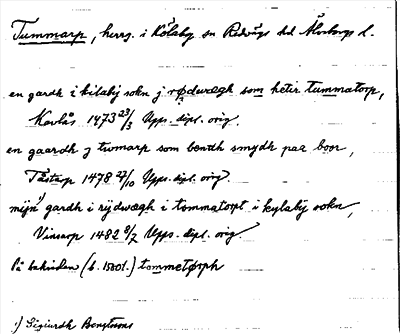 Tummarp, herrg. i Kölaby sn Redvägs hd Älvsborgs l.
en gardh i kilabij sokn j rødwægh som hetir tummatorp,
Kavlås 1473 23/3 Upps. dipl. orig.
en gaardh j tumarp som bendh smydh paa boor,
Tåstarp 1478 27/10 Upps. dipl. orig.
mijn¹⁾ gardh i rijdwægh i tommatorpt i kylabij sokn,
Vinsarp 1482 9/7 Upps. dipl. orig.
På baksidan (b. 1500t.) tommetørph
¹⁾ Sigurdh Bengtsons